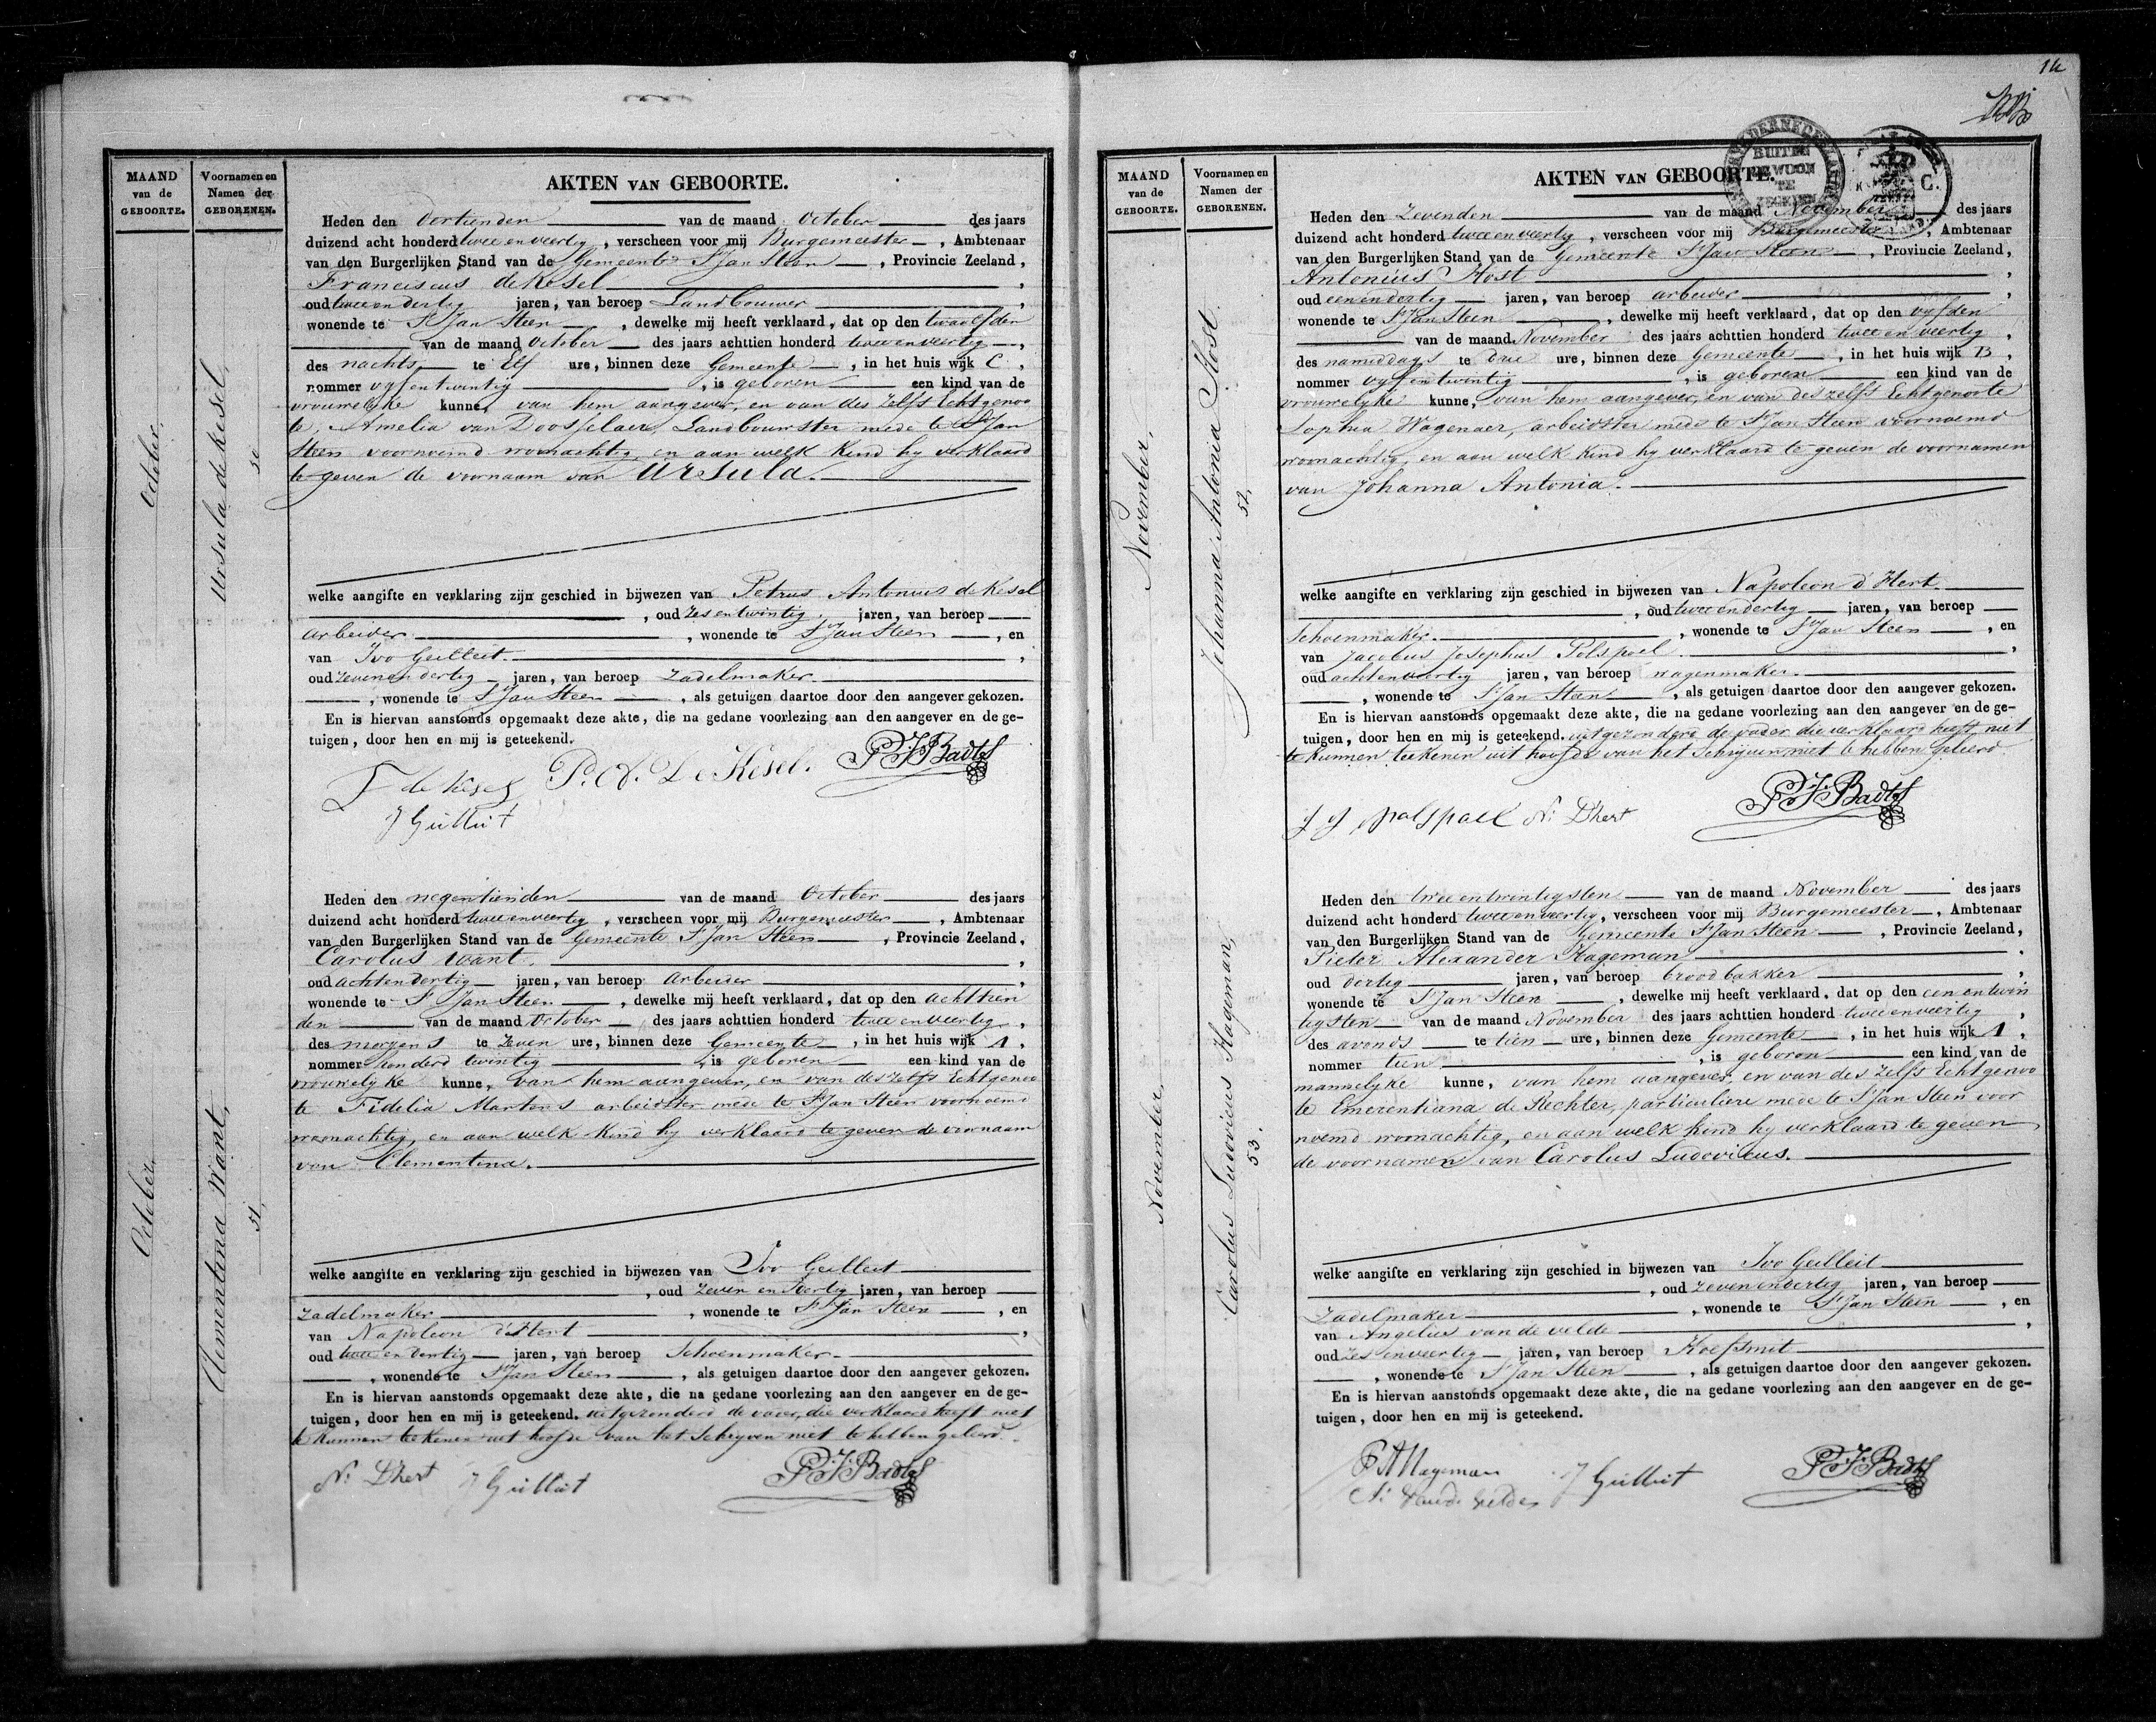 MAAND
van de
GEBOORTE.
Voornamen en
Namen der
GEBORENEN.
AKTEN VAN GEBOORTE.
October,
Ursula de Kesel,
50
Heden den dertienden van de maand October des jaars
duizend acht honderd twee en veertig, verscheen voor mij Burgemeester, Ambtenaar
van den Burgerlijken Stand van de Gemeente St Jan Steen, Provincie Zeeland,
Franciscus de Kesel,
oud twee en dertig jaren, van beroep Landbouwer,
wonende te St Jan Steen, dewelke mij heeft verklaard, dat op den twaalfden
van de maand October des jaars achttien honderd twee en veertig,
des nachts te Elf ure, binnen deze Gemeente, in het huis wijk C,
nommer vyfentwintig, is geboren een kind van de
vrouwelyke kunne, van hem aangever, en van des zelfs Echtgenoo
te, Amelia van Dosselaer, Landbouwster mede te St Jan
Steen voornoemd woonachtig, en aan welk kind hy verklaard
te geven de voornaam van Ursula.
welke aangifte en verklaring zijn geschied in bijwezen van Petrus Antonius de Kesel
, oud zes en twintig jaren, van beroep
arbeider, wonende te St Jan Steen, en
van Ivo Geilleit.,
oud zeven en dertig jaren, van beroep Zadelmaker.
, wonende te St Jan Steen, als getuigen daartoe door den aangever gekozen.
En is hiervan aanstonds opgemaakt deze akte, die na gedane voorlezing aan den aangever en de ge-
tuigen, door hen en mij is geteekend.
F de Kesel P. A. De Kesel. P. J. Badts
J Geilleit
October,
Clementina Want,
51,
Heden den negentienden van de maand October des jaars
duizend acht honderd twee en veertig, verscheen voor mij Burgemeester, Ambtenaar
van den Burgerlijken Stand van de Gemeente St Jan Steen, Provincie Zeeland,
Carolus Want.,
oud achtendertig jaren, van beroep arbeider,
wonende te St Jan Steen, dewelke mij heeft verklaard, dat op den achttien
den van de maand October des jaars achttien honderd twee en veertig,
des morgens te zeven ure, binnen deze Gemeente, in het huis wijk A,
nommer honderd twintig, is geboren een kind van de
vrouwelyke kunne, van hem aangever, en van des zelfs Echtgenoo
te Fidelia Martens arbeidster mede te St Jan Steen voornoemd
woonachtig, en aan welk kind hy verklaard te geven de voornaam
van Clementina.
welke aangifte en verklaring zijn geschied in bijwezen van Ivo Geilleit
, oud zeven en dertig jaren, van beroep
zadelmaker, wonende te St Jan Steen, en
van Napoleon d'Hert,
oud twee en dertig jaren, van beroep Schoenmaker.
, wonende te St Jan Steen, als getuigen daartoe door den aangever gekozen.
En is hiervan aanstonds opgemaakt deze akte, die na gedane voorlezing aan den aangever en de ge-
tuigen, door hen en mij is geteekend. uitgezonderd de vader, die verklaard heeft niet
te kunnen teekenen uit hoofde van het schryven niet te hebben geleerd.
N. Dhert J Geilleit P. J. Badts
14
MAAND
van de
GEBOORTE.
Voornamen en
Namen der
GEBORENEN.
AKTEN VAN GEBOORTE.
BUITEN
GEWOON
TE
C.
November,
Johanna Antonia Host
52,
Heden den Zevenden van de maand November des jaars
duizend acht honderd twee en veertig, verscheen voor mij Burgemeester, Ambtenaar
van den Burgerlijken Stand van de Gemeente St Jan Steen, Provincie Zeeland,
Antonius Host,
oud een en dertig jaren, van beroep arbeider,
wonende te St Jan Steen, dewelke mij heeft verklaard, dat op den vyfden
van de maand November des jaars achttien honderd twee en veertig,
des namiddags te drie ure, binnen deze Gemeente, in het huis wijk B,
nommer vyf en twintig, is geboren een kind van de
vrouwelyke kunne, van hem aangever, en van des zelfs Echtgenoote
Sophia Wagenaer, arbeidster mede te St Jan Steen voornoemd
woonachtig, en aan welk kind hy verklaard te geven de voornamen
van Johanna Antonia.
welke aangifte en verklaring zijn geschied in bijwezen van Napoleon d'Hert.
, oud twee en dertig jaren, van beroep
Schoenmaker., wonende te St Jan Steen, en
van Jacobus Josephus Polspoel.,
oud achtenveertig jaren, van beroep wagenmaker.
, wonende te St Jan Steen, als getuigen daartoe door den aangever gekozen.
En is hiervan aanstonds opgemaakt deze akte, die na gedane voorlezing aan den aangever en de ge-
tuigen, door hen en mij is geteekend. uitgezonderd de vader die verklaard heeft niet
te kunnen teekenen uit hoofde van het Schryven niet te hebben geleerd
J J polspoel N. Dhert P. J. Badts
November,
Carolus Ludovicus Hageman,
53.
Heden den twee en twintigsten van de maand November des jaars
duizend acht honderd twee en veertig, verscheen voor mij Burgemeester, Ambtenaar
van den Burgerlijken Stand van de Gemeente St Jan Steen, Provincie Zeeland,
Pieter Alexander Hageman,
oud dertig jaren, van beroep broodbakker,
wonende te St Jan Steen, dewelke mij heeft verklaard, dat op den een en twin
tigsten van de maand November des jaars achttien honderd twee en veertig,
des avonds te tien ure, binnen deze Gemeente, in het huis wijk A,
nommer tien, is geboren een kind van de
mannelyke kunne, van hem aangever, en van des zelfs Echtgenoo
te Emerentiana de Rechter, particuliere mede te St Jan Steen voor
noemd woonachtig, en aan welk kind hy verklaard te geven
de voornamen van Carolus Ludovicus.
welke aangifte en verklaring zijn geschied in bijwezen van Ivo Geilleit
, oud zeven en dertig jaren, van beroep
Zadelmaker, wonende te St Jan Steen, en
van Angelus van de velde,
oud zes en veertig jaren, van beroep Hoefsmit
, wonende te St Jan Steen, als getuigen daartoe door den aangever gekozen.
En is hiervan aanstonds opgemaakt deze akte, die na gedane voorlezing aan den aangever en de ge-
tuigen, door hen en mij is geteekend.
P A Hageman J Geilleit P. J. Badts